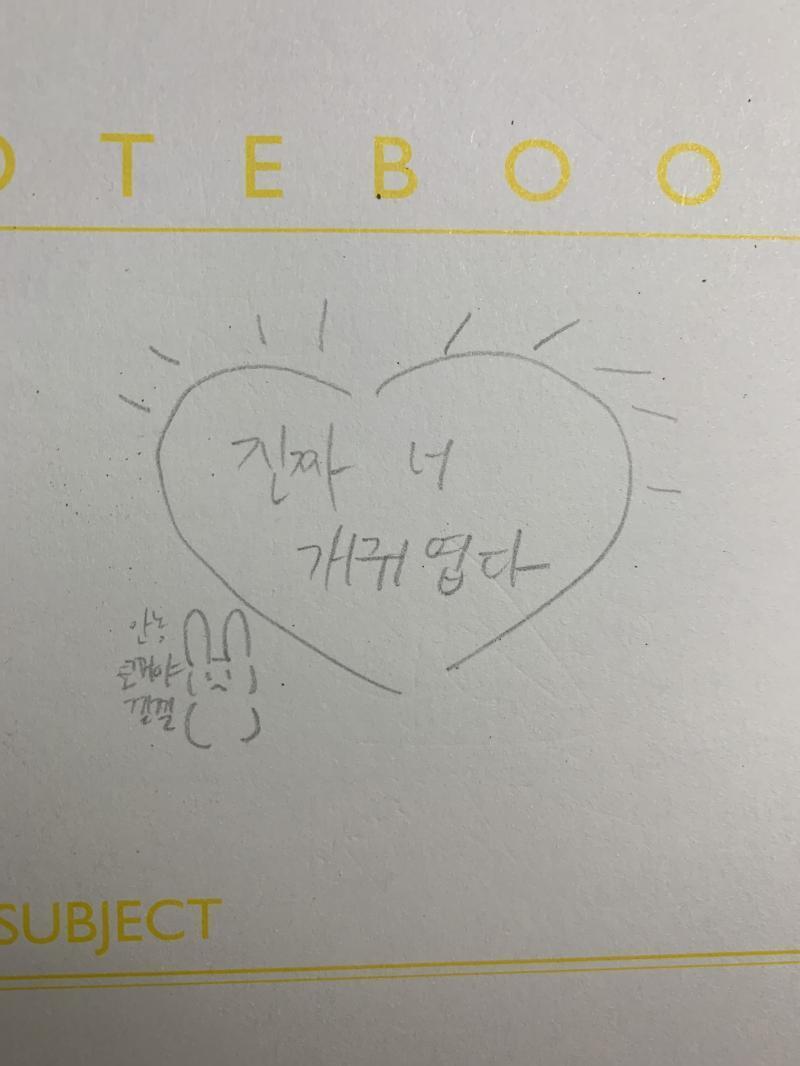 OTEBOO
진짜 너
개귀엽다
안농
토끼야
낄낄
SUBJECT